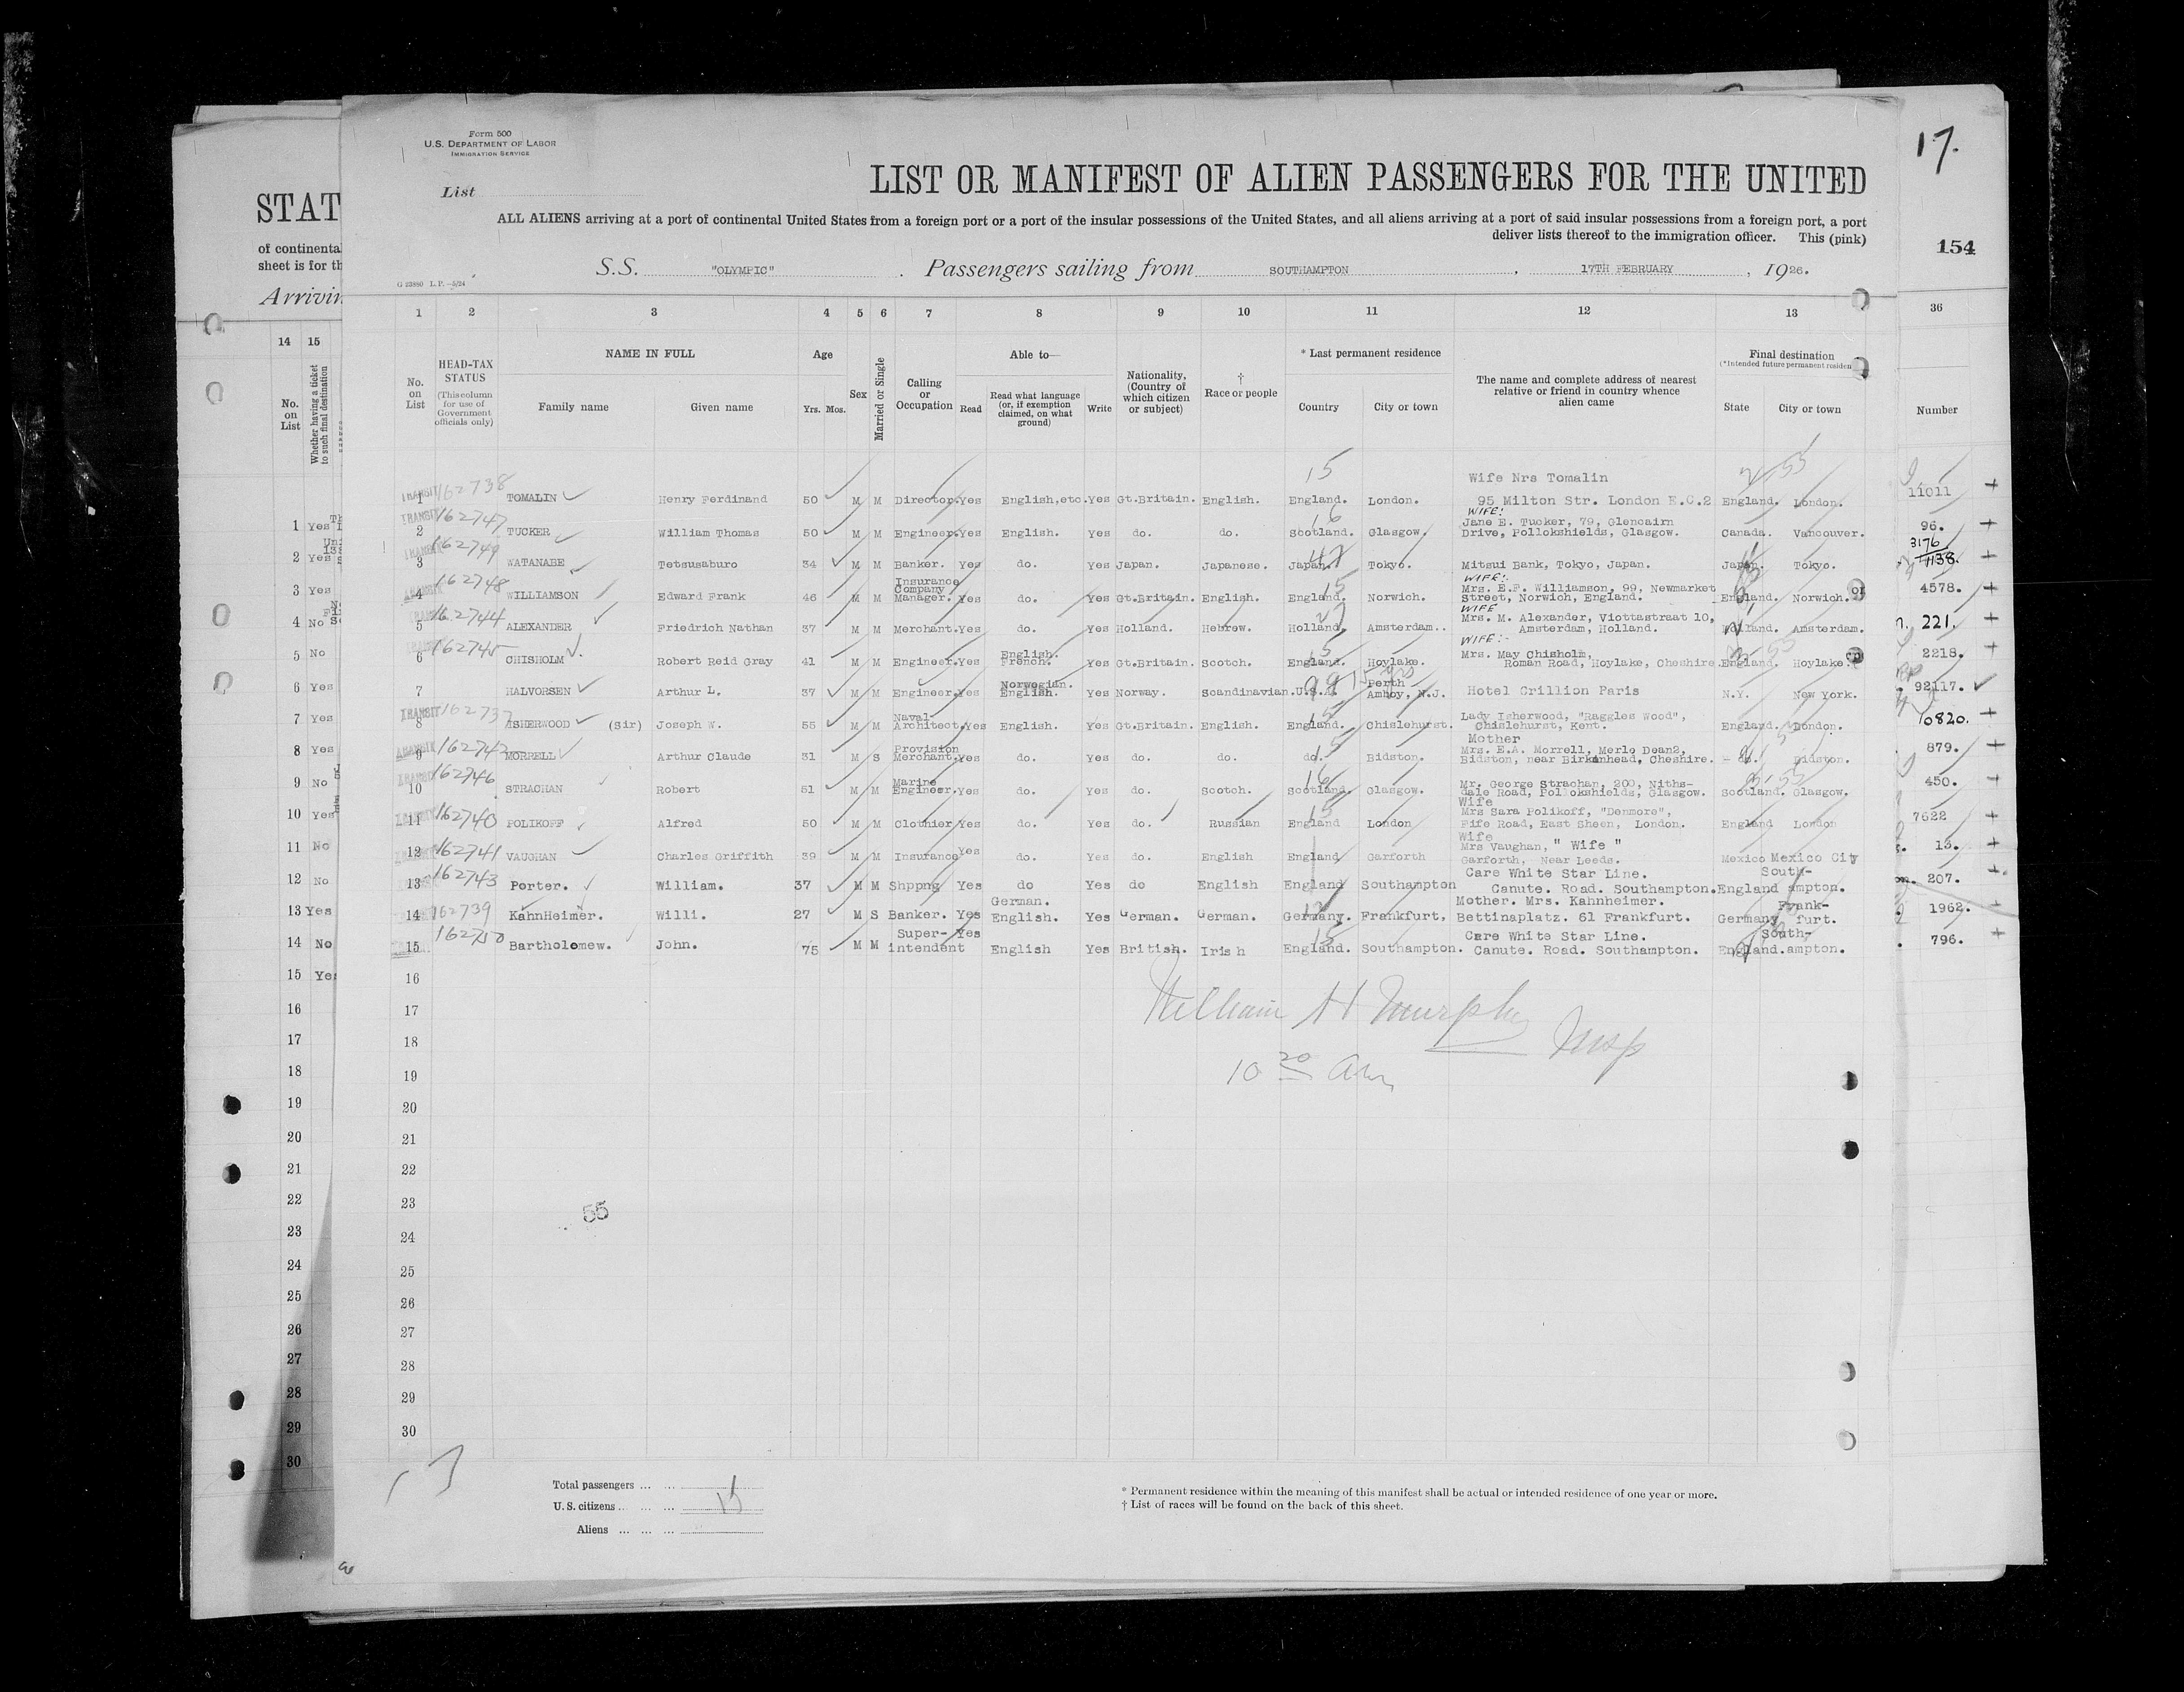 Form 500
U.S. DEPARTMENT OF LABOR
IMMIGRATION SERVICE
List
LIST OR MANIFEST OF ALIEN PASSENGERS FOR THE UNITED
17.
STAT
ALL ALIENS arriving at a port of continental United States from a foreign port or a port of the insular possessions of the United States, and all aliens arriving at a port of said insular possessions from a foreign port, a port
deliver lists thereof to the immigration officer. This (pink)
154
of continenta
sheet is for th
Arrivin
S.S. "OLYMPIC". Passengers sailing from SOUTHAMPTON, 17TH FEBRUARY, 1926.
G 23880 I. P.—5/24
14 15
1 2 3 4 5 6 7 8 9 10 11 12 13 36
No. on List
Whether having a ticket to such final destination
No. on List
HEAD-TAX STATUS
(This column for use of Government officials only)
NAME IN FULL
Family name Given name
Age
Yrs. Mos.
Sex
Married or Single
Calling or Occupation
Able to—
Read
Read what language (or, if exemption claimed, on what ground)
Write
Nationality, (Country of which citizen or subject)
† Race or people
* Last permanent residence
Country City or town
The name and complete address of nearest relative or friend in country whence alien came
Final destination
(*Intended future permanent residen
State City or town
Number
1 TRANSIT 162738 TOMALIN Henry Ferdinand 50 M M Director. Yes English,etc. Yes Gt.Britain. English. 15 England. London. Wife Nrs Tomalin 95 Milton Str. London E.C.2 England. London. 11011 +
2 TRANSIT 162747 TUCKER William Thomas 50 M M Engineer. Yes English. Yes do. do. 16 Scotland. Glasgow. WIFE: Jane E. Tucker, 79, Glencairn Drive, Pollokshields, Glasgow. Canada. Vancouver. 96. +
3 TRANSIT 162749 WATANABE Tetsusaburo 34 M M Banker. Yes do. Yes Japan. Japanese. Japan. Tokyo. Mitsui Bank, Tokyo, Japan. Japan. Tokyo. 3176 1138. +
4 162748 WILLIAMSON Edward Frank 46 M M Insurance Company Manager. Yes do. Yes Gt.Britain. English. 15 England. Norwich. WIFE: Mrs. E.F. Williamson, 99, Newmarket Street, Norwich, England. England. Norwich. 4578. +
5 162744 ALEXANDER Friedrich Nathan 37 M M Merchant. Yes do. Yes Holland. Hebrew. Holland. Amsterdam.. WIFE Mrs. M. Alexander, Viottastraat 10, Amsterdam, Holland. Holland. Amsterdam. 221. +
6 162745 CHISHOLM Robert Reid Gray 41 M M Engineer. Yes English. French. Yes Gt.Britain. Scotch. 15 England. Hoylake. WIFE:- Mrs. May Chisholm, Roman Road, Hoylake, Cheshire. England. Hoylake. 2218. +
7 HALVORSEN Arthur L. 37 M M Engineer. Yes Norwegian. English. Yes Norway. Scandinavian. 99 U.S.A. Perth Amboy, N.J. Hotel Crillion Paris N.Y. New York. 92117.
8 TRANSIT 162737 ISHERWOOD (Sir) Joseph W. 55 M M Naval Architect. Yes English. Yes Gt.Britain. English. 15 England. Chislehurst. Lady Isherwood, "Raggles Wood", Chislehurst, Kent. England. London. 10820. +
9 TRANSIT 162742 MORRELL Arthur Claude 31 M S Provision Merchant. Yes do. Yes do. do. 15 do. Bidston. Mother Mrs. E.A. Morrell, Merlo Dean2, Bidston, near Birkenhead, Cheshire. - do. Bidston. 879. +
10 TRANSIT 162746 STRACHAN Robert 51 M M Marine Engineer. Yes do. Yes do. Scotch. 16 Scotland. Glasgow. Mr. George Strachan, 200, Niths- dale Road, Pollokshields, Glasgow. Scotland. Glasgow. 450. +
11 162740 POLIKOFF Alfred 50 M M Clothier Yes do. Yes do. Russian 15 England London Wife Mrs Sara Polikoff, "Denmore", Fife Road, East Sheen, London. England London 7622 +
12 162741 VAUGHAN Charles Griffith 39 M M Insurance Yes do. Yes do. English England Garforth Wife Mrs Vaughan, " Wife " Garforth, Near Leeds. Mexico Mexico City 13. +
13 162743 Porter. William. 37 M M Shppng Yes do Yes do English England Southampton Care White Star Line. Canute. Road. Southampton. England South- ampton. 207. +
14 162739 KahnHeimer. Willi. 27 M S Banker. Yes German. English. Yes German. German. Germany. Frankfurt, Mother. Mrs. Kahnheimer. Bettinaplatz. 61 Frankfurt. Germany Frank- furt. 1962. +
15 162750 Bartholomew. John. 75 M M Super- intendent Yes English Yes British. Irish 15 England. Southampton. Care White Star Line. Canute. Road. Southampton. England. South- ampton. 796. +
1 Yes
2 Yes
3 Yes
4 No
5 No
6 Yes
7 Yes
8 Yes
9 No
10 Yes
11 No
12 No
13 Yes
14 No
15 Yes
16
17
18
19
20
21
22
23
24
25
26
27
28
29
30
16
17
18
19
20
21
22
23
24
25
26
27
28
29
30
William H Murphy
Insp
10 20 am
55
17
Total passengers ... ...
U. S. citizens ... ... ... 15
Aliens ... ... ...
* Permanent residence within the meaning of this manifest shall be actual or intended residence of one year or more.
† List of races will be found on the back of this sheet.